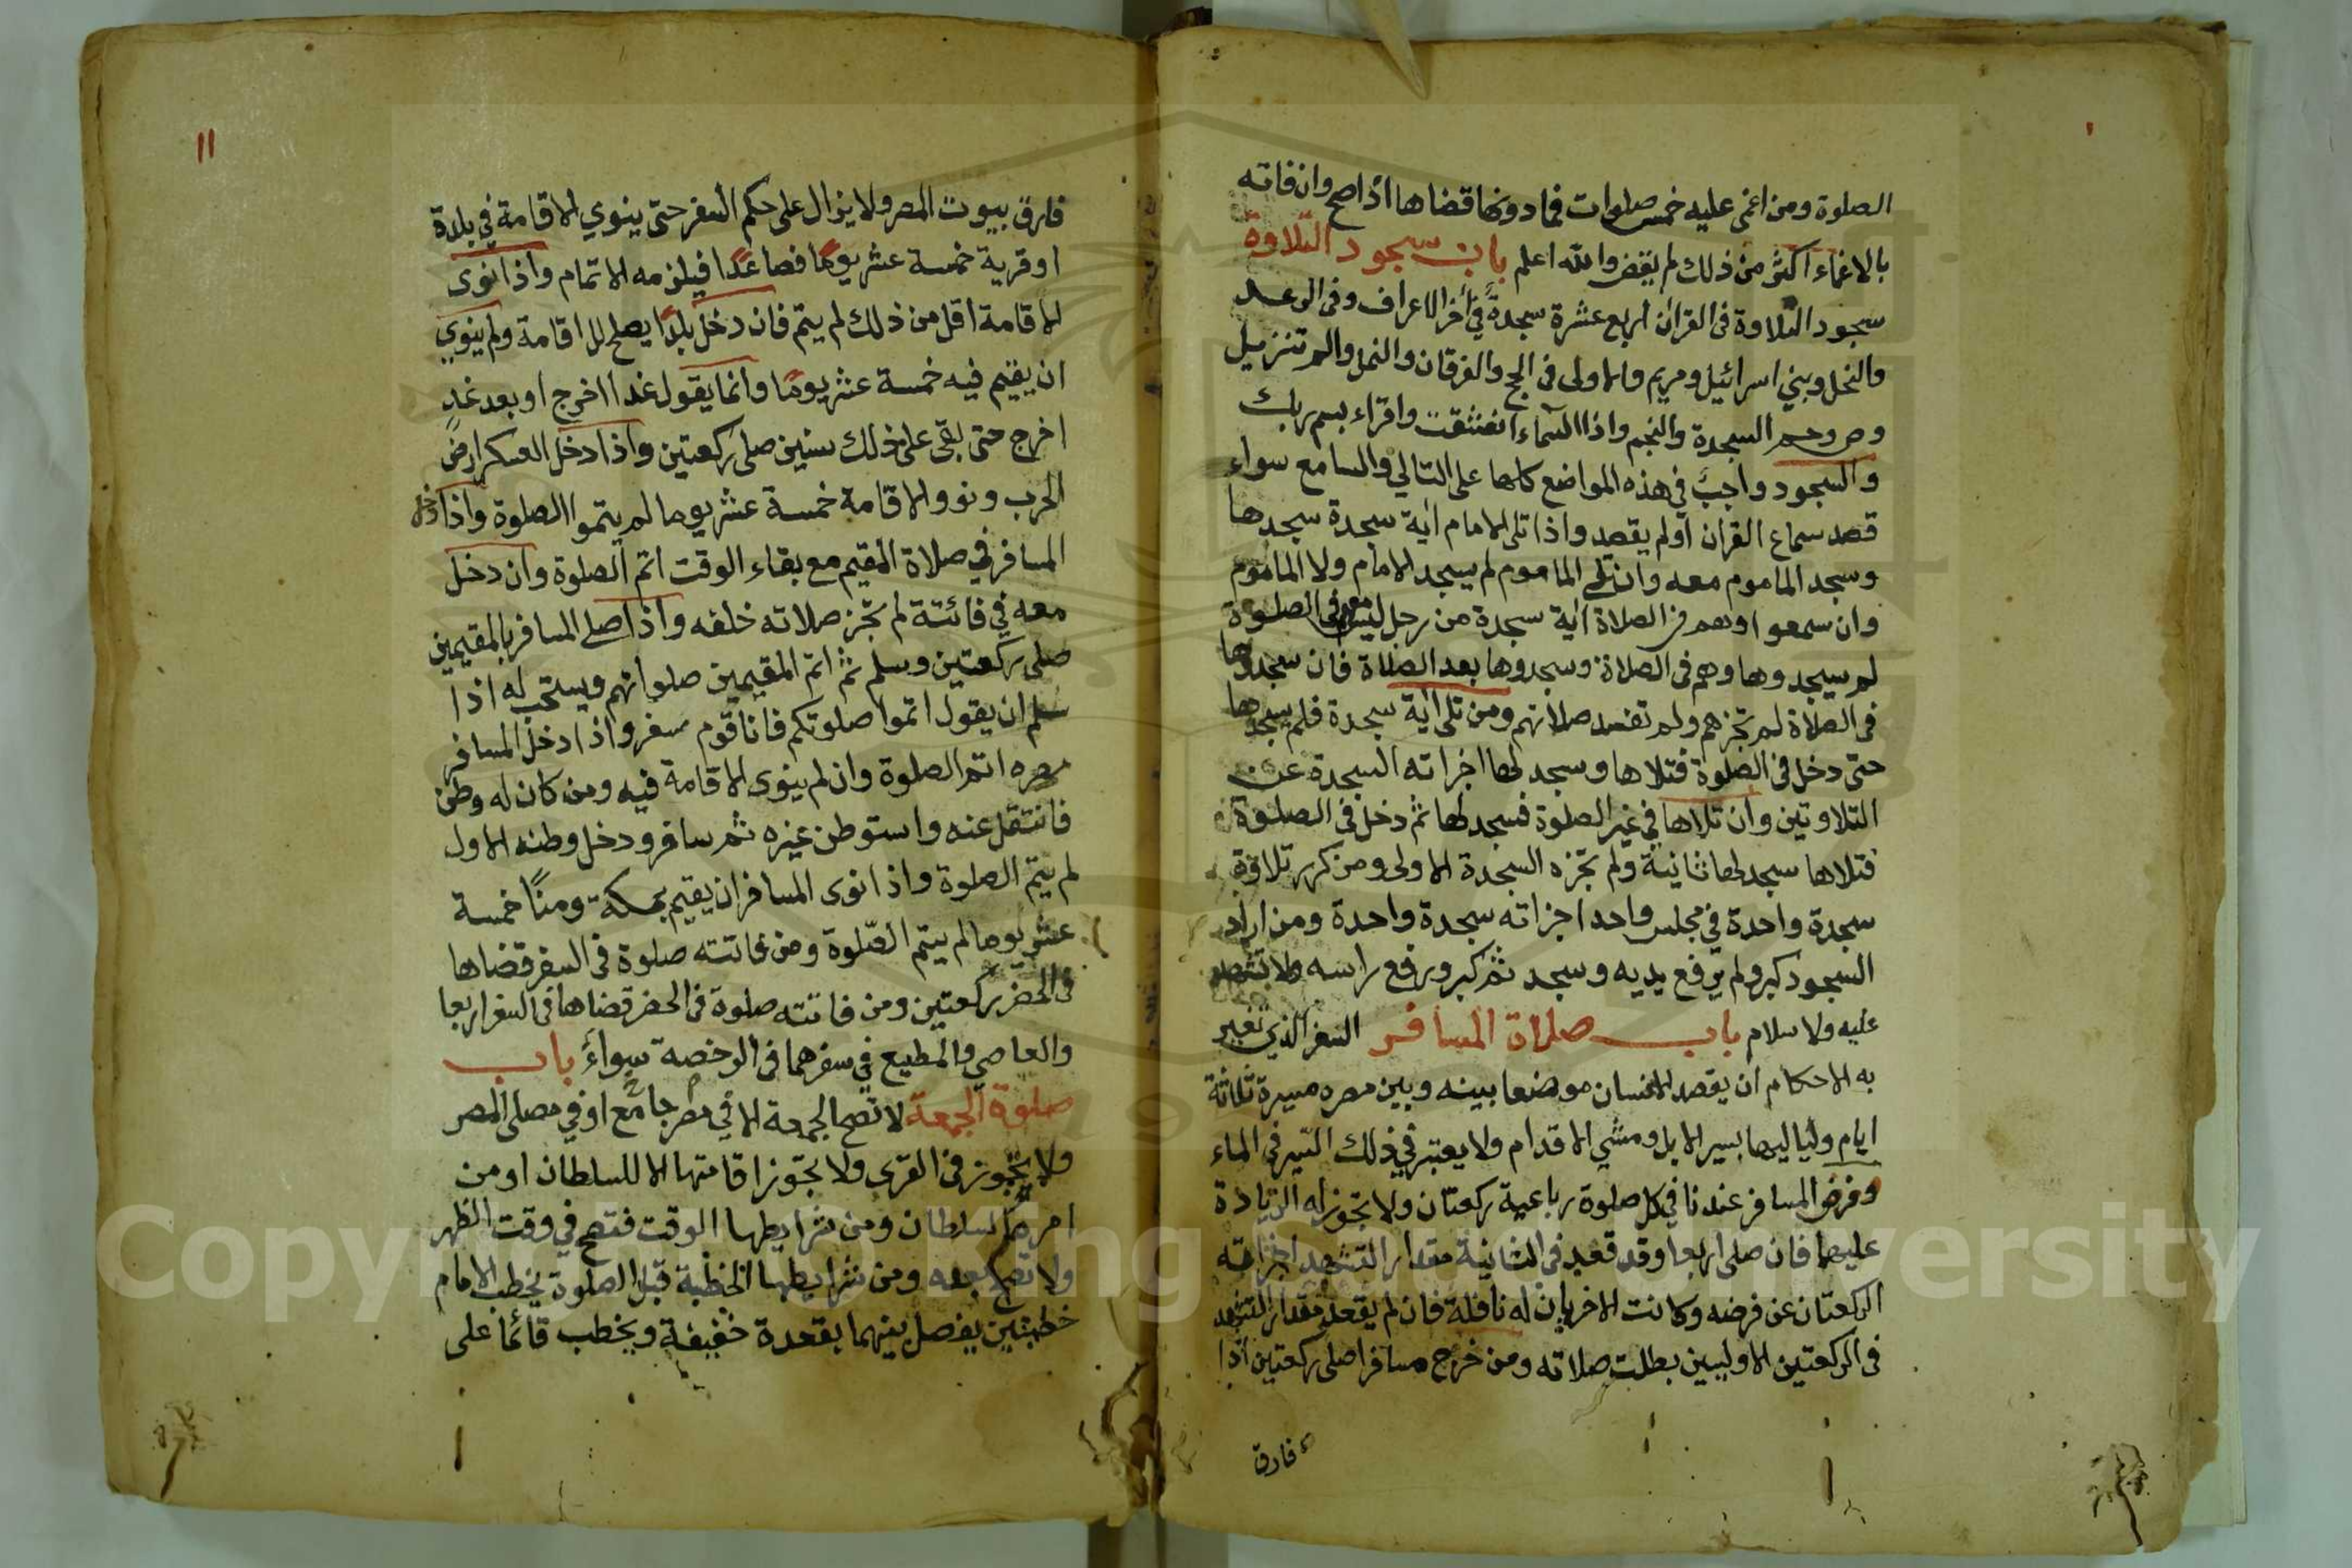 الصلوة ومن اغمى عليه خمس صلوات فما دونها قضاها اذا صح وان فاته
بالاغماء اكثر من ذلك لم يقض والله اعلم باب سجود التلاوة
سجود التلاوة فى القرآن اربع عشرة سجدة في آخر الاعراف وفى الرعد
والنحل وبني اسرائيل ومريم والاولى فى الحج والفرقان والنمل والم تنزيل
وص وحم السجدة والنجم واذا السماء انشقت واقراء بسم ربك
والسجود واجب في هذه المواضع كلها على التالي والسامع سواء
قصد سماع القران او لم يقصد واذا تلى الامام اية سجدة سجدها
وسجد الماموم معه وان تلى الماموم لم يسجد الامام ولا الماموم
وان سمعوا وهم فى الصلاة اية سجدة من رجل ليس معهم فى الصلوة
لم يسجدوها وهم فى الصلاة وسجدوها بعد الصلاة فان سجدوها
فى الصلاة لم تجزهم ولم تفسد صلاتهم ومن تلى اية سجدة فلم يسجدها
حتى دخل فى الصلوة فتلاها وسجد لها اجزاته السجدة عن
التلاوتين وان تلاها في غير الصلوة فسجد لها ثم دخل فى الصلوة
فتلاها سجد لها ثانية ولم تجزه السجدة الاولى ومن كرر تلاوة
سجدة واحدة في مجلس واحد اجزاته سجدة واحدة ومن اراد
السجود كبر ولم يرفع يديه وسجد ثم كبر ورفع راسه ولا تشهد
عليه ولا سلام باب صلاة المسافر السفر الذي تغير
به الاحكام ان يقصد الانسان موضعا بينه وبين مصره مسيرة ثلاثة
ايام ولياليها بسير الابل ومشي الاقدام ولا يعتبر في ذلك السير فى الماء
وفرض المسافر عندنا في كل صلوة رباعية ركعتان ولا تجوز له الزيادة
عليهما فان صلى اربعا وقد قعد فى الثانية مقدار التشهد اجزاته
الركعتان عن فرضه وكانت الاخريان له نافلة فان لم يقعد مقدار التشهد
فى الركعتين الاوليين بطلت صلاته ومن خرج مسافرا صلى ركعتين اذا
فارق
١١
فارق بيوت المصر ولا يزال على حكم السفر حتى ينوي الاقامة في بلدة
او قرية خمسة عشر يوما فصاعدا فيلزمه الاتمام واذا نوى
الاقامة اقل من ذلك لم يتم فان دخل بلدا يصلح للاقامة ولم ينوي
ان يقيم فيه خمسة عشر يوما وانما يقول غدا اخرج او بعد غد
اخرج حتى بقى على ذلك سنين صلى ركعتين واذا دخل العسكر ارض
الحرب ونووا الاقامة خمسة عشر يوما لم يتموا الصلوة واذا دخل
المسافر في صلاة المقيم مع بقاء الوقت اتم الصلوة وان دخل
معه في فائتة لم تجز صلاته خلفه واذا صلى المسافر بالمقيمين
صلى ركعتين وسلم ثم اتم المقيمين صلواتهم ويستحب له اذا
سلم ان يقول اتموا صلوتكم فانا قوم سفر واذا دخل المسافر
مصره اتم الصلوة وان لم ينوى الاقامة فيه ومن كان له وطن
فانتقل عنه واستوطن غيره ثم سافر ودخل وطنه الاول
لم يتم الصلوة واذا نوى المسافر ان يقيم بمكة ومنًا خمسة
عشر يوما لم يتم الصلوة ومن فاتته صلوة فى السفر قضاها
فى الحضر ركعتين ومن فاتته صلوة فى الحضر قضاها فى السفر اربعا
والعاصي والمطيع في سفرهما فى الرخصة سواء باب
صلوة الجمعة لا تصح الجمعة الا في مصر جامع او في مصلى المصر
ولا تجوز فى القرى ولا تجوز اقامتها الا للسلطان او من
امره السلطان ومن شرايطها الوقت فتصح في وقت الظهر
ولا تصح بعده ومن شرايطها الخطبة قبل الصلوة يخطب الامام
خطبتين يفصل بينهما بقعدة خفيفة ويخطب قائما على
Copyright © King Saud University